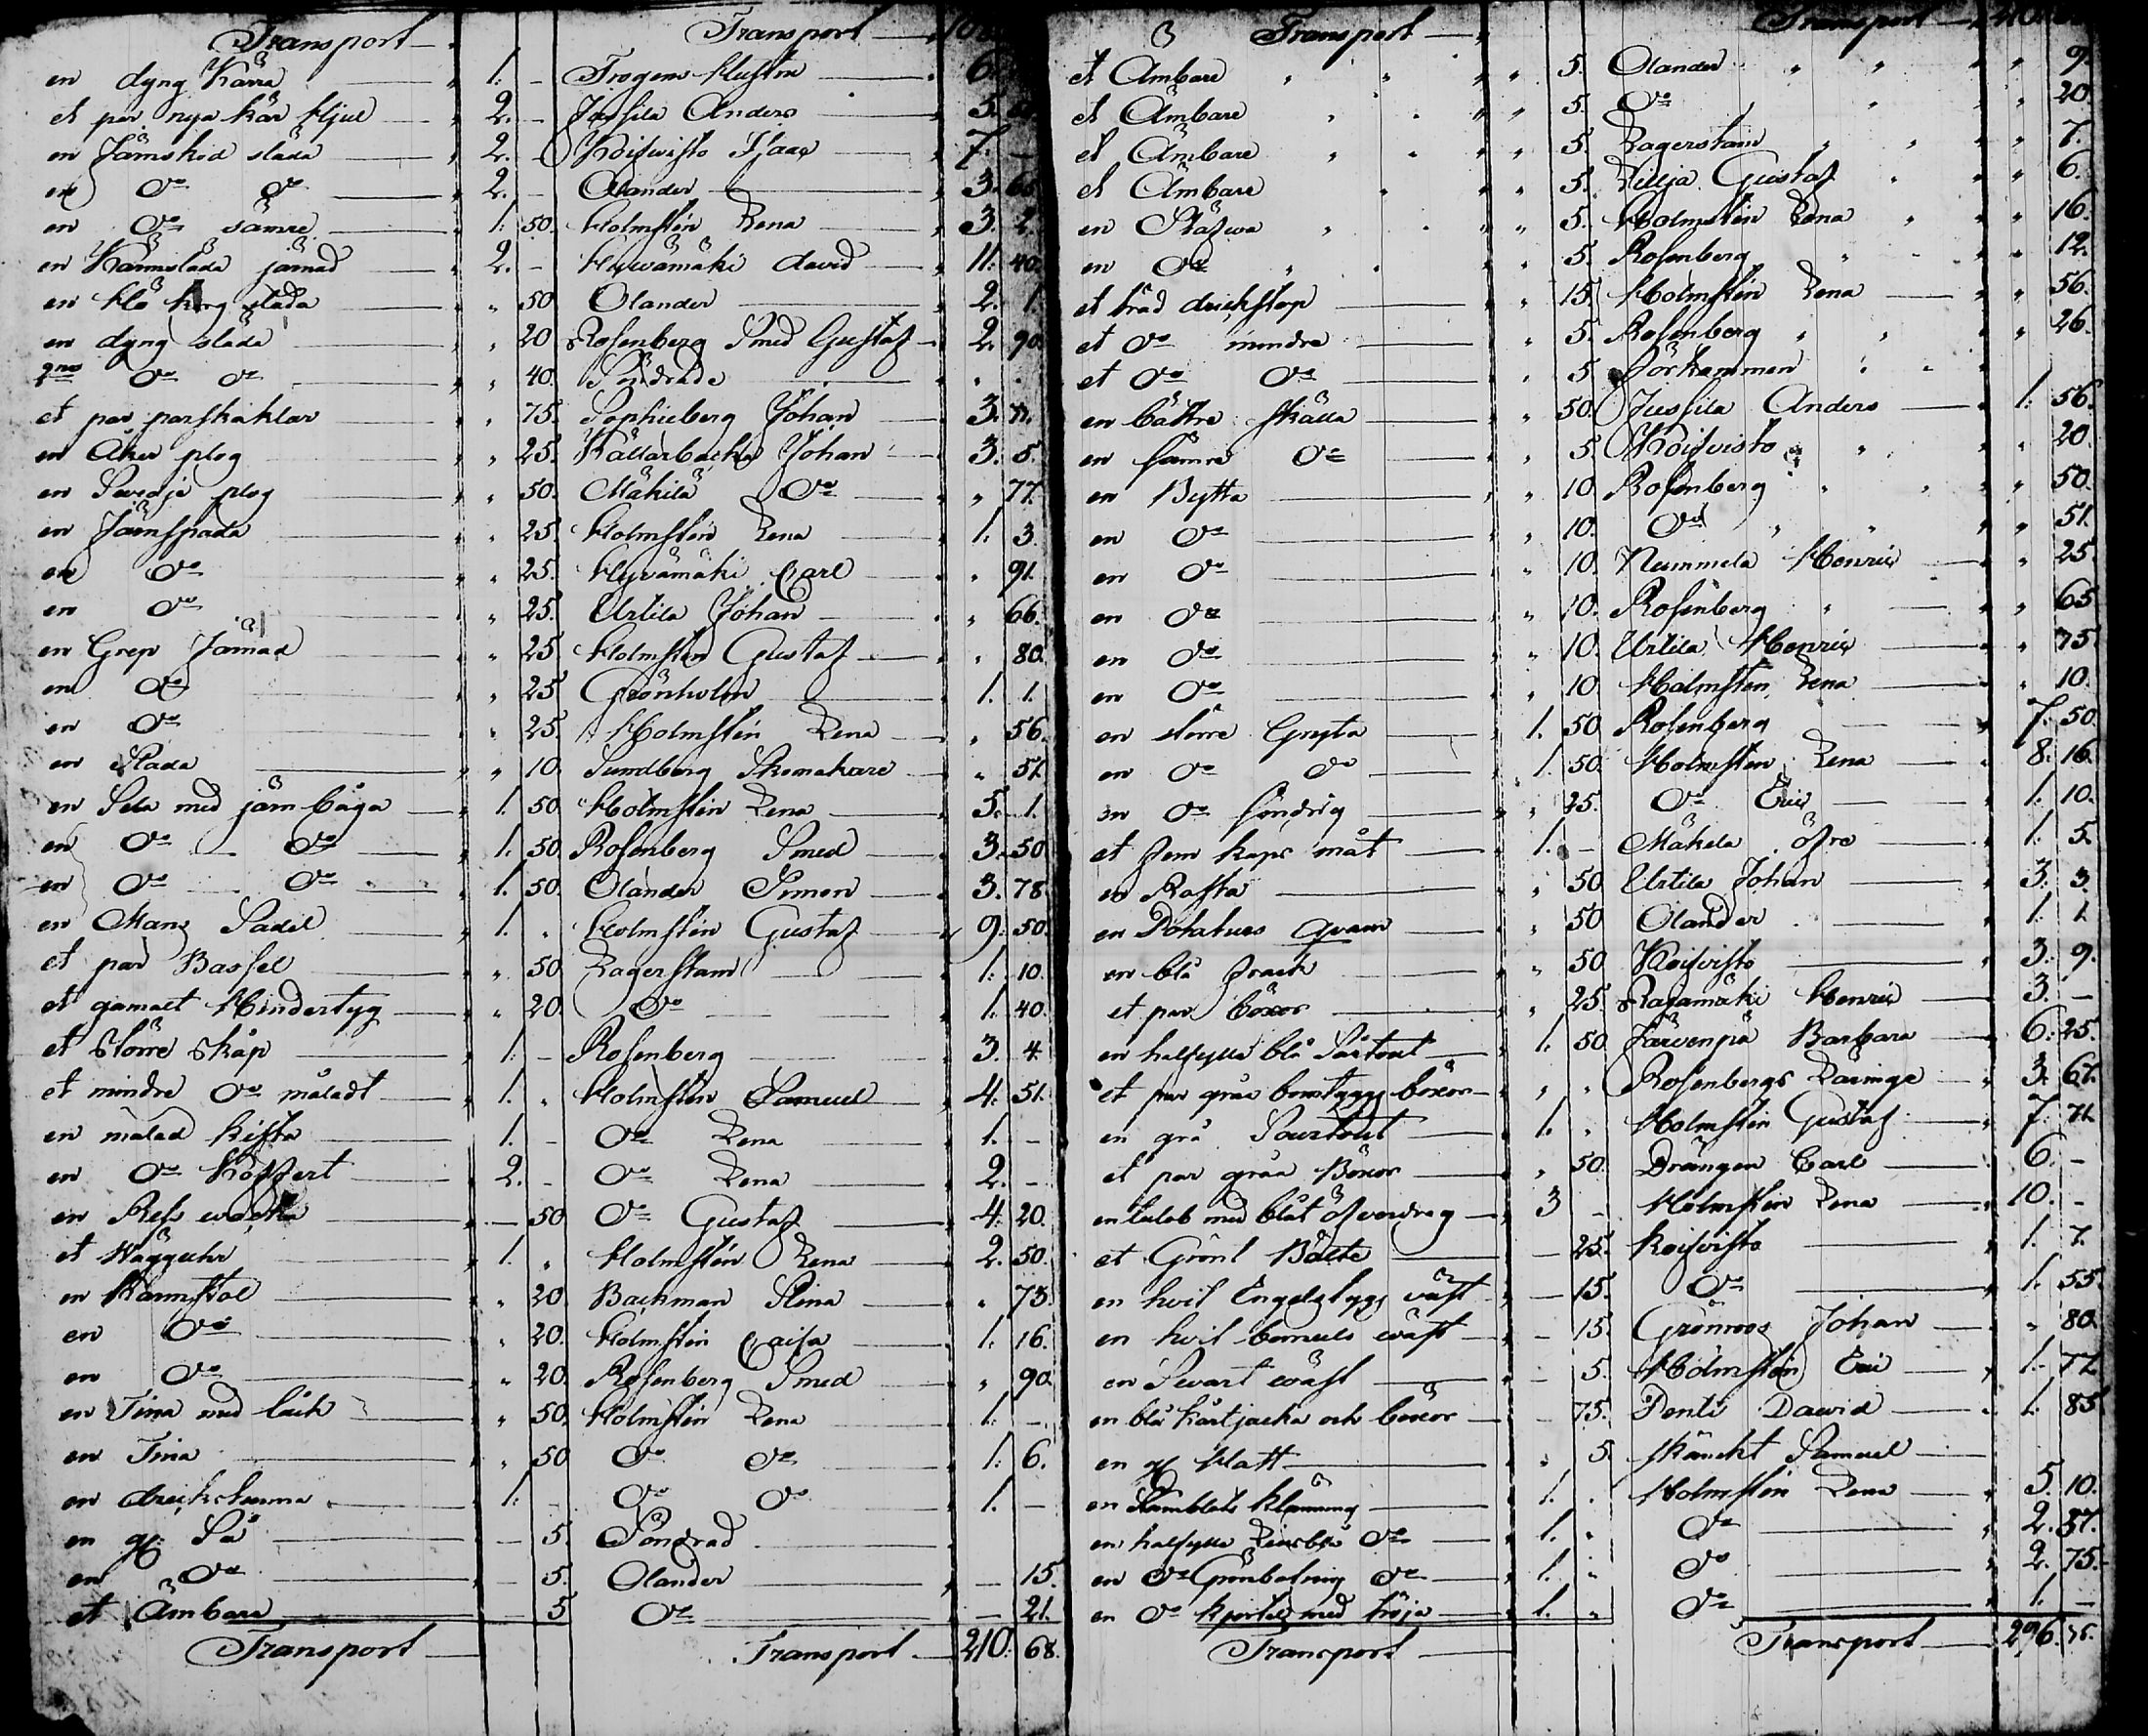 Transport — Transport — 10
en dyng Kärra — 1. - Trogens Hustru — 6.
et par nya kär Hjul — 2. - Jussila Anders — 5.
en Järnskod släda — 2. - Koifvisto Isaac — 7. -
en Do Do — 2. - Olander — 3. 65
en Do sämre — 1. 50. Holmstén Lena — 3. 2.
en Karmsläda järnad — 2. - Hywämäki david — 11. 40.
en släda — " 50. Olander — 2. 1.
en dyng släda — " 20 Rosenberg Smed Gustaf — 2. 90.
2ne Do Do — " 40. Söndrade — " .
et par parskaklar — " 75. Sophieberg Johan — 3. 71.
en Åker plog — " 25. Källarbacka Johan — 3. 5.
en Swedje plog — " 50. Mäkilä Do — " 77.
en Järnspada — " 25. Holmstén Lena — 1. 3.
en Do — " 25. Hyvämäki Carl — " 91.
en Do — " 25. Urtila Johan — " 66.
en Grep Järnad — " 25 Holmstén Gustaf — " 80.
en Do — " 25 Grönholm — 1. 1.
en Do — " 25. Holmstén Lena — " 56.
en Slada — " 10. Sundberg Skomakare — " 51.
en Sela med järn båga — 1. 50 Holmstén Lena — 5. 1.
en Do Do — 1. 50 Rosenberg Smed — 3. 50
en Do Do — 1. 50. Olander Simon — 3. 78.
en Mans Sadel — 1. " Holmstén Gustaf — 9. 50.
et par Bassel — " 50 Lagerstam — 1. 10.
et gamalt Hindertyg — " 20. Do — 1. 40.
et större skåp — 1. - Rosenberg — 3. 4.
et mindre Do måladt — 1. " Holmstén Samuel — 4. 51.
en målad kista — 1. - Do Lena — 1. -
en Do Koffert — 2. - Do Lena — 2. -
en Res wacka — 50. Do Gustaf — 4. 20.
et Wägguhr — 1. " Holmstén Lena — 2. 50.
en Karmstol — " 20. Backman Stina — " 75.
en Do — " 20. Holmstén Caisa — 1. 16.
en Do — " 20. Rosenberg Smed — " 90.
en Tina med låck — " 50. Holmstén Lena — 1. -
en Tina — " 50 Do Do — 1. 6.
en dricks — 1. - Do Do — 1. -
en gl. Så — 5. Söndrad
en Do — 5. Olander — 15.
et Ämbare — 5 Do — 21.
Transport — Transport — 210. 68.
Transport — Transport — 210
et Ämbare " " " 5. Olander " " 9.
et Ämbare " " " 5. Do " 20.
et Ämbare " " " 5. Lagerstam " " 7.
et Ämbare " " 5. Lillja Gustaf " " 6.
en Stäfwa " " " 5. Holmstén Lena " " 16.
en Do " " " 5. Rosenberg " " 12.
et träd dricksstop — " 15. Holmstén Lena — " 56.
et Do mindre — " 5. Rosenberg " " 26.
et Do Do — " 5 Förkommen " "
en bättre skälla — " 50. Jussila Anders — 1. 56.
en sämre Do — " 5. Koifvisto " " 20.
en Bytta — " 10. Rosenberg " " 50.
en Do — " 10. Do " " 51.
en Do — " 10. Nummela Henric — " 25.
en Do — " 10. Rosenberg — " 65
en Do — " 10. Urtila Henric — " 75
en Do — " 10. Holmstén Lena — " 10.
en större Gryta — 1. 50 Rosenberg — 7. 50.
en Do Do — 1. 50. Holmstén Lena — 8. 16.
en Do söndrig — " 25. Do Eric — 1. 10.
et fem kaps mått — 1. - Mäkelä öfre — 1. 5.
en — " 50 Urtila Johan — 3. 3.
en Potatues qvarn — " 50 Olander — 1. 1.
en blå frack — " 50 Koifvisto — 3. 9.
et par böxor — " 25. Rajamäki Henric — 3. -
en halfylle blå Sürtout — 1. 50. Järvenpä Barbara — 6. 25.
et par gråa bomstygs böxor — " " Rosenbergs — 3. 67.
en grå Sourtout — 1. " Holmstén Gustaf — 7. 71.
et par gråa Böxor — " 50. Drängen Carl — 6. -
en lulob med blåt öfverdrag — 3 - Holmstén Lena — 10. -
et Grönt Bälte — 25. Koifvisto — 1. 7.
en hvit Engelstygs väst — 15. Do — 1. 55.
en hvit bomuls wäst — 15. Grönroos Johan — " 80.
en Swart wäst — 5. Holmstén Eric — 1. 77.
en blå kårtjacka och böxor — 75. Penti David — 1. 85.
en gl. Hatt — " 5. Skänckt Samuel —
en Klänning — 1. " Holmstén Lena — 5. 10.
en halfylle Do — 1. " Do — 2. 37.
en Do Grönbotnig Do — 1. " Do — 2. 75.
en Do kjortel med tröja — 1. " Do — 1. -
Transport — Transport — 296. 76.